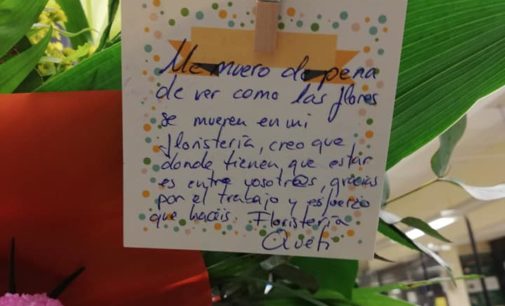 Me muero de pena
de ver como las flores
se mueren en mi
floristería, creo que,
donde tienen que estar
es entre vosotr@s, gracias
por el trabajo y esfuerzo
que haceis. Floristería
Queti